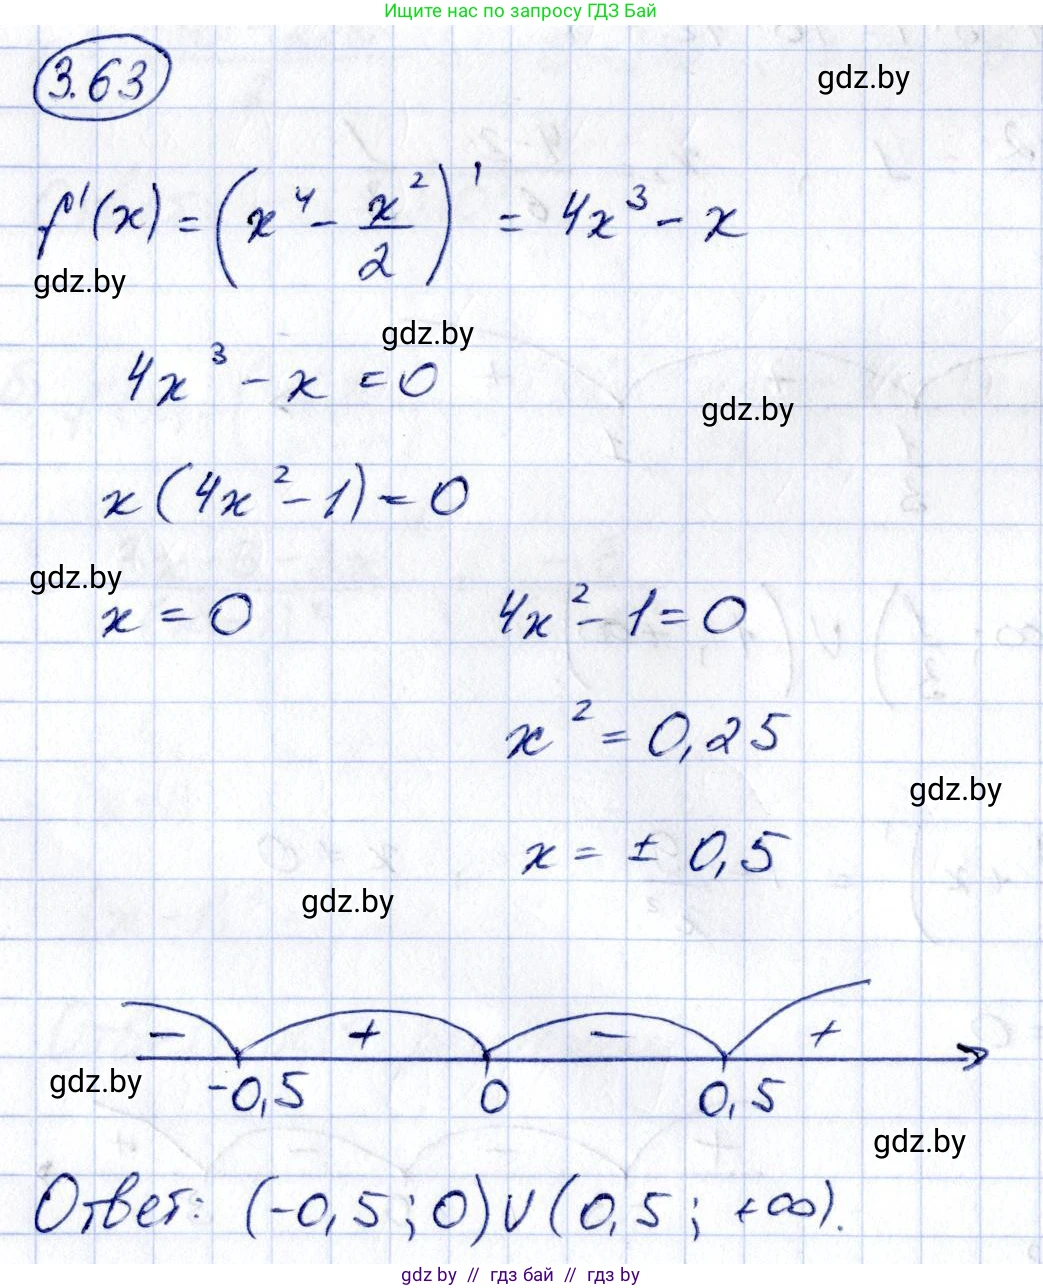 Ищите нас по запросу ГДЗ Бай
3.63
gdz.by
f'(x) = (x⁴ - x²/2)' = 4x³ - x
gdz.by
gdz.by
4x³ - x = 0
gdz.by
x(4x² - 1) = 0
gdz.by
x = 0 4x² - 1 = 0
x² = 0,25
gdz.by
x = ± 0,5
gdz.by
- + - +
-0,5 0 0,5
gdz.by
gdz.by
Ответ: (-0,5; 0) ∪ (0,5; +∞).
gdz.by // гдз бай // гдз by